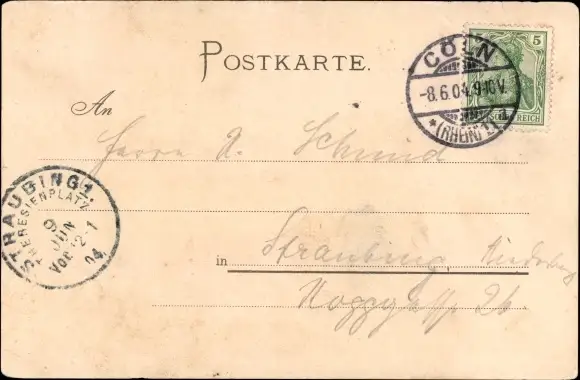 POSTKARTE.
5
CÖLN
-8.6.04.9-10V.
*(RHEIN)1
REICH
An
Herrn A. Schmid
STRAUBING 1.
THERESIENPLATZ
9
JUN
04
in Straubing,